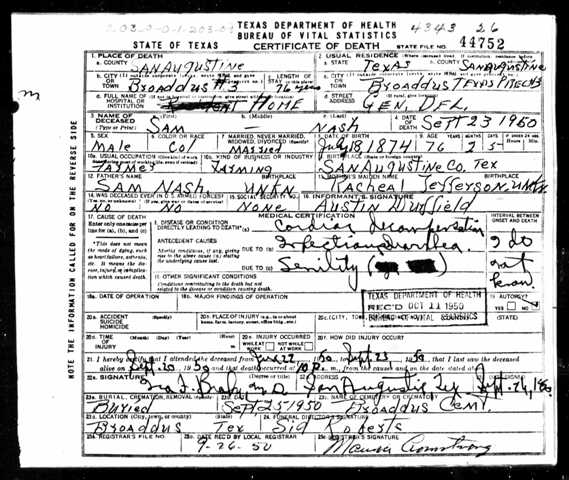 TEXAS DEPARTMENT OF HEALTH 4343 26
BUREAU OF VITAL STATISTICS
STATE OF TEXAS CERTIFICATE OF DEATH STATE FILE NO. 44752
1. PLACE OF DEATH
a. COUNTY SANAUGUSTINE
2. USUAL RESIDENCE
a. STATE TEXAS b. COUNTY SANAUGUSTINE
b. CITY OR TOWN BROADDUS #3 c. LENGTH OF STAY 76
c. CITY OR TOWN BROADDUS TEXAS
d. FULL NAME OF HOSPITAL OR INSTITUTION HOME
d. STREET ADDRESS GEN. DEL.
3. NAME OF DECEASED (Type or Print) a. (First) SAM b. (Middle) c. (Last) NASH 4. DATE OF DEATH SEPT 23 1950
5. SEX Male 6. COLOR OR RACE Col 7. MARRIED, NEVER MARRIED, WIDOWED, DIVORCED (Specify) MARRIED 8. DATE OF BIRTH July 18 1874 9. AGE 76 2 5
10a. USUAL OCCUPATION FARMER 10b. KIND OF BUSINESS OR INDUSTRY FARMING 11. BIRTHPLACE (State or foreign country) SANAUGUSTINE CO. TEX
12. FATHER'S NAME SAM NASH BIRTHPLACE UNKN. 13. MOTHER'S MAIDEN NAME Racheal Jefferson BIRTHPLACE UNKN
14. WAS DECEASED EVER IN U.S. ARMED FORCES? NO NO 15. SOCIAL SECURITY NO. NONE 16. INFORMANT'S SIGNATURE AUSTIN Duffield
17. CAUSE OF DEATH
Enter only one cause per line for (a), (b), and (c)
MEDICAL CERTIFICATION
INTERVAL BETWEEN ONSET AND DEATH
I. DISEASE OR CONDITION DIRECTLY LEADING TO DEATH* (a) Cardiac decompensation
*This does not mean the mode of dying, such as heart failure, asthenia, etc. It means the disease, injury, or complication which caused death.
ANTECEDENT CAUSES
Morbid conditions, if any, giving rise to the above cause (a) stating the underlying cause last.
DUE TO (b)
DUE TO (c) Senility
II. OTHER SIGNIFICANT CONDITIONS
Conditions contributing to the death but not related to the disease or condition causing death.
18a. DATE OF OPERATION 18b. MAJOR FINDINGS OF OPERATION 19. AUTOPSY? YES NO
TEXAS DEPARTMENT OF HEALTH
REC'D OCT 11 1950
BUREAU OF VITAL STATISTICS
20a. ACCIDENT SUICIDE HOMICIDE (Specify) 20b. PLACE OF INJURY
20d. TIME OF INJURY 20e. INJURY OCCURRED WHILE AT WORK NOT WHILE AT WORK 20f. HOW DID INJURY OCCUR?
21. I hereby certify that I attended the deceased from June 22 1950, to Sept 23, 1950, that I last saw the deceased
alive on Sept 20, 1950 and that death occurred at 10 p. m., from the causes and on the date stated above.
22a. SIGNATURE San Augustine Tex Sept. 26, 1950
23a. BURIAL, CREMATION, REMOVAL (Specify) Buried 23b. DATE Sept. 25-1950 23c. NAME OF CEMETERY OR CREMATORY Broaddus Cemt.
23d. LOCATION (City, town, or county) (State) Broaddus Tex 24. FUNERAL DIRECTOR'S SIGNATURE Sid Roberts
25a. REGISTRAR'S FILE NO. 25b. DATE REC'D BY LOCAL REGISTRAR 9-26-50 25c. REGISTRAR'S SIGNATURE Armstrong
NOTE THE INFORMATION CALLED FOR ON THE REVERSE SIDE